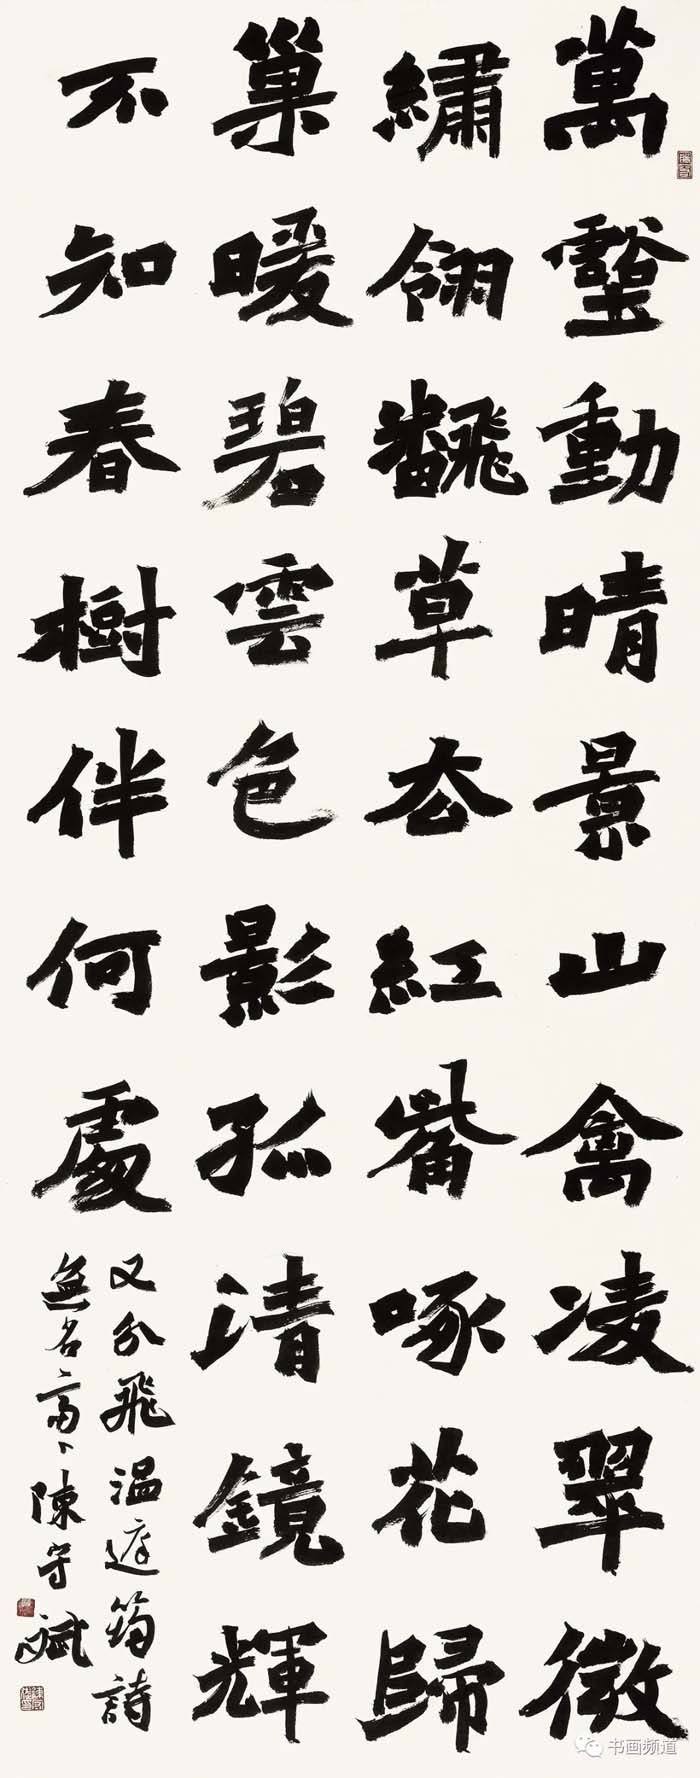 萬壑動晴景山禽凌翠微
繡翎飜草去紅觜啄花歸
巢暖碧雲色影孤清鏡輝
不知春樹伴何處
又分飛溫庭筠詩
無名陳守斌
书画频道